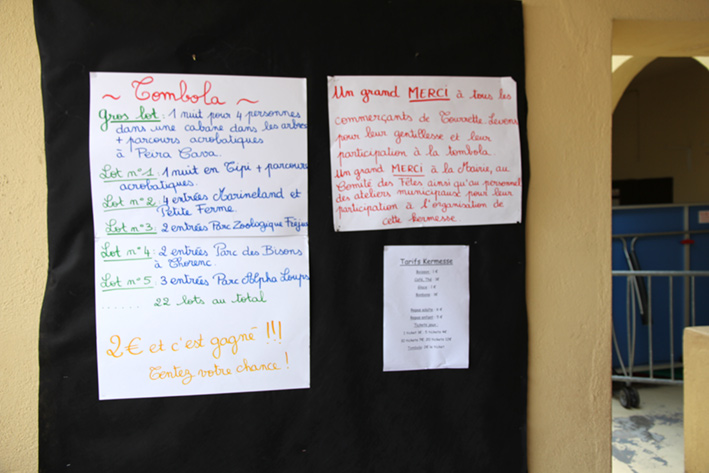 ~ Tombola ~
Gros lot : 1 nuit pour 4 personnes
dans une cabane dans les arbres
+ parcours acrobatiques
à Peira Cava.
Lot n°1 : 1 nuit en Tipi + parcours
acrobatiques.
Lot n°2 : 4 entrées Marineland et
Petite Ferme.
Lot n°3 : 2 entrées Parc Zoologique Fréjus
Lot n°4 : 2 entrées Parc des Bisons
à Thorenc.
Lot n°5 : 3 entrées Parc Alpha Loups
...... 22 lots au total
2€ et c'est gagné !!!
Tentez votre chance !
Un grand MERCI à tous les
commerçants de Tourrette. Levens
pour leur gentillesse et leur
participation à la tombola.
Un grand MERCI à la Mairie, au
Comité des Fêtes ainsi qu'au personnel
des ateliers municipaux pour leur
participation à l'organisation de
cette kermesse
Tarifs Kermesse